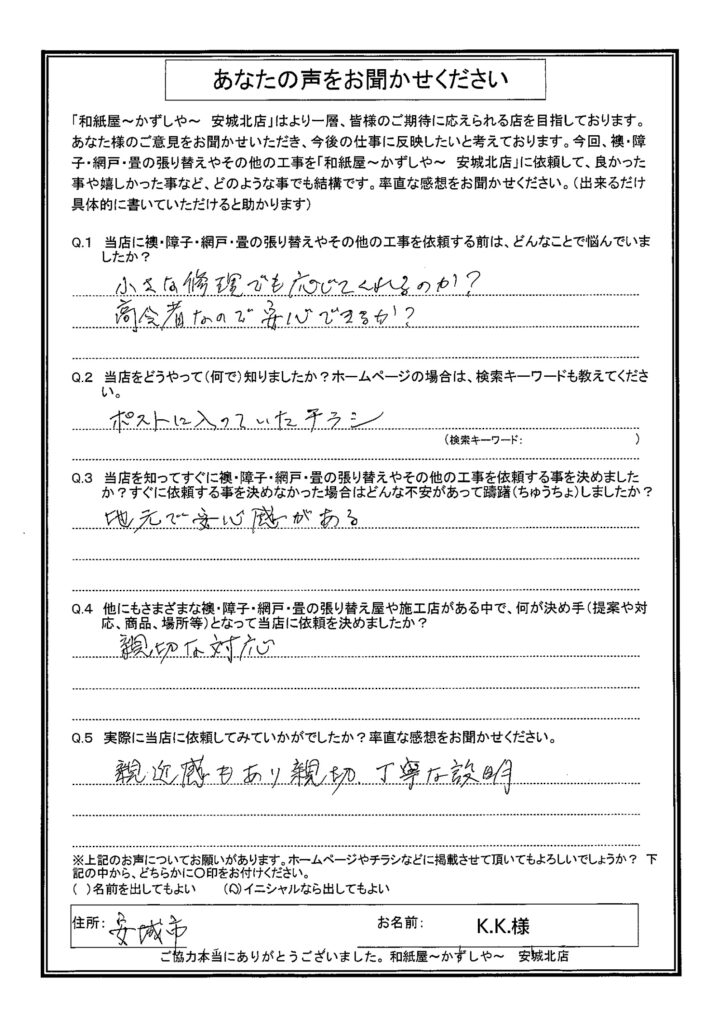 あなたの声をお聞かせください
「和紙屋～かずしや～　安城北店」はより一層、皆様のご期待に応えられる店を目指しております。
あなた様のご意見をお聞かせいただき、今後の仕事に反映したいと考えております。今回、襖・障
子・網戸・畳の張り替えやその他の工事を「和紙屋～かずしや～　安城北店」に依頼して、良かった
事や嬉しかった事など、どのような事でも結構です。率直な感想をお聞かせください。（出来るだけ
具体的に書いていただけると助かります）
Q.1　当店に襖・障子・網戸・畳の張り替えやその他の工事を依頼する前は、どんなことで悩んでいま
したか？
小さな修理でも応じてくれるのか？
高令者なので安心できるか？
Q.2　当店をどうやって（何で）知りましたか？ホームページの場合は、検索キーワードも教えてくださ
い。
ポストに入っていたチラシ
（検索キーワード：　　　）
Q.3　当店を知ってすぐに襖・障子・網戸・畳の張り替えやその他の工事を依頼する事を決めました
か？すぐに依頼する事を決めなかった場合はどんな不安があって躊躇（ちゅうちょ）しましたか？
地元で安心感がある
Q.4　他にもさまざまな襖・障子・網戸・畳の張り替え屋や施工店がある中で、何が決め手（提案や対
応、商品、場所等）となって当店に依頼を決めましたか？
親切な対応
Q.5　実際に当店に依頼してみていかがでしたか？率直な感想をお聞かせください。
親近感もあり親切、丁寧な説明
※上記のお声についてお願いがあります。ホームページやチラシなどに掲載させて頂いてもよろしいでしょうか？　下
記の中から、どちらかに〇印をお付けください。
（　）名前を出してもよい　　（〇）イニシャルなら出してもよい
住所：安城市　お名前：　K.K.様
ご協力本当にありがとうございました。和紙屋～かずしや～　安城北店